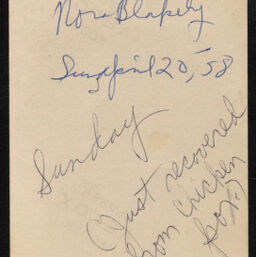 Nora Blakely
April 20, '58
Sunday
(Just recovered
from chicken
pox.)